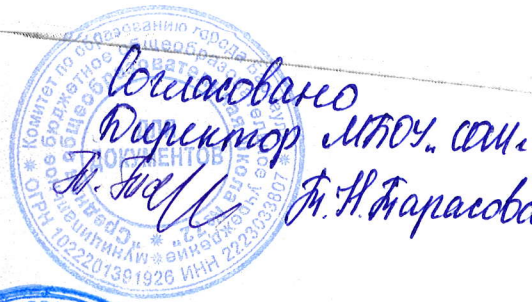 Согласовано
Директор МБОУ „СОШ
Т.Н. Тарасова
ДЛЯ
ДОКУМЕНТОВ
Комитет по образованию города
Муниципальное бюджетное общеобразовательное учреждение
"Средняя общеобразовательная школа
ОГРН 1022201391926 ИНН 2223033807